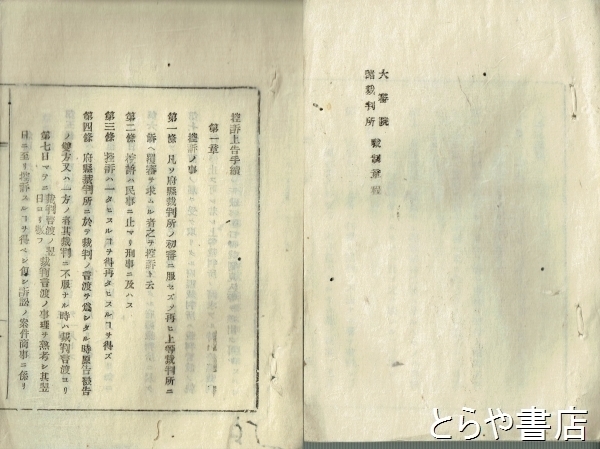 大審院
諸裁判所 職制章程
控訴上告手續
第一章
控訴ノ事
第一條 凡ソ府縣裁判所ノ初審ニ服セズ乄再ヒ上等裁判所ニ
訴ヘ覆審ヲ求ムル者之ヲ控訴ト云
第二條 控訴ハ民事ニ止マリ刑事ニ及ハス
第三條 控訴ハ一タヒスルヿヲ得再タヒスルヿヲ得ズ
第四條 府縣裁判所ニ於テ裁判ノ言渡ヲ爲シタル時原告被告
ノ雙方又ハ一方ノ者其裁判ニ不服ナル時ハ裁判言渡ヨリ
第七日マテニ 裁判言渡ノ翌日ヨリ數フ 裁判言渡ノ事理ヲ熟考シ其翌
日ニ至リ控訴スルヿヲ得ベシ但シ訴訟ノ案件商事ニ係リ
とらや書店